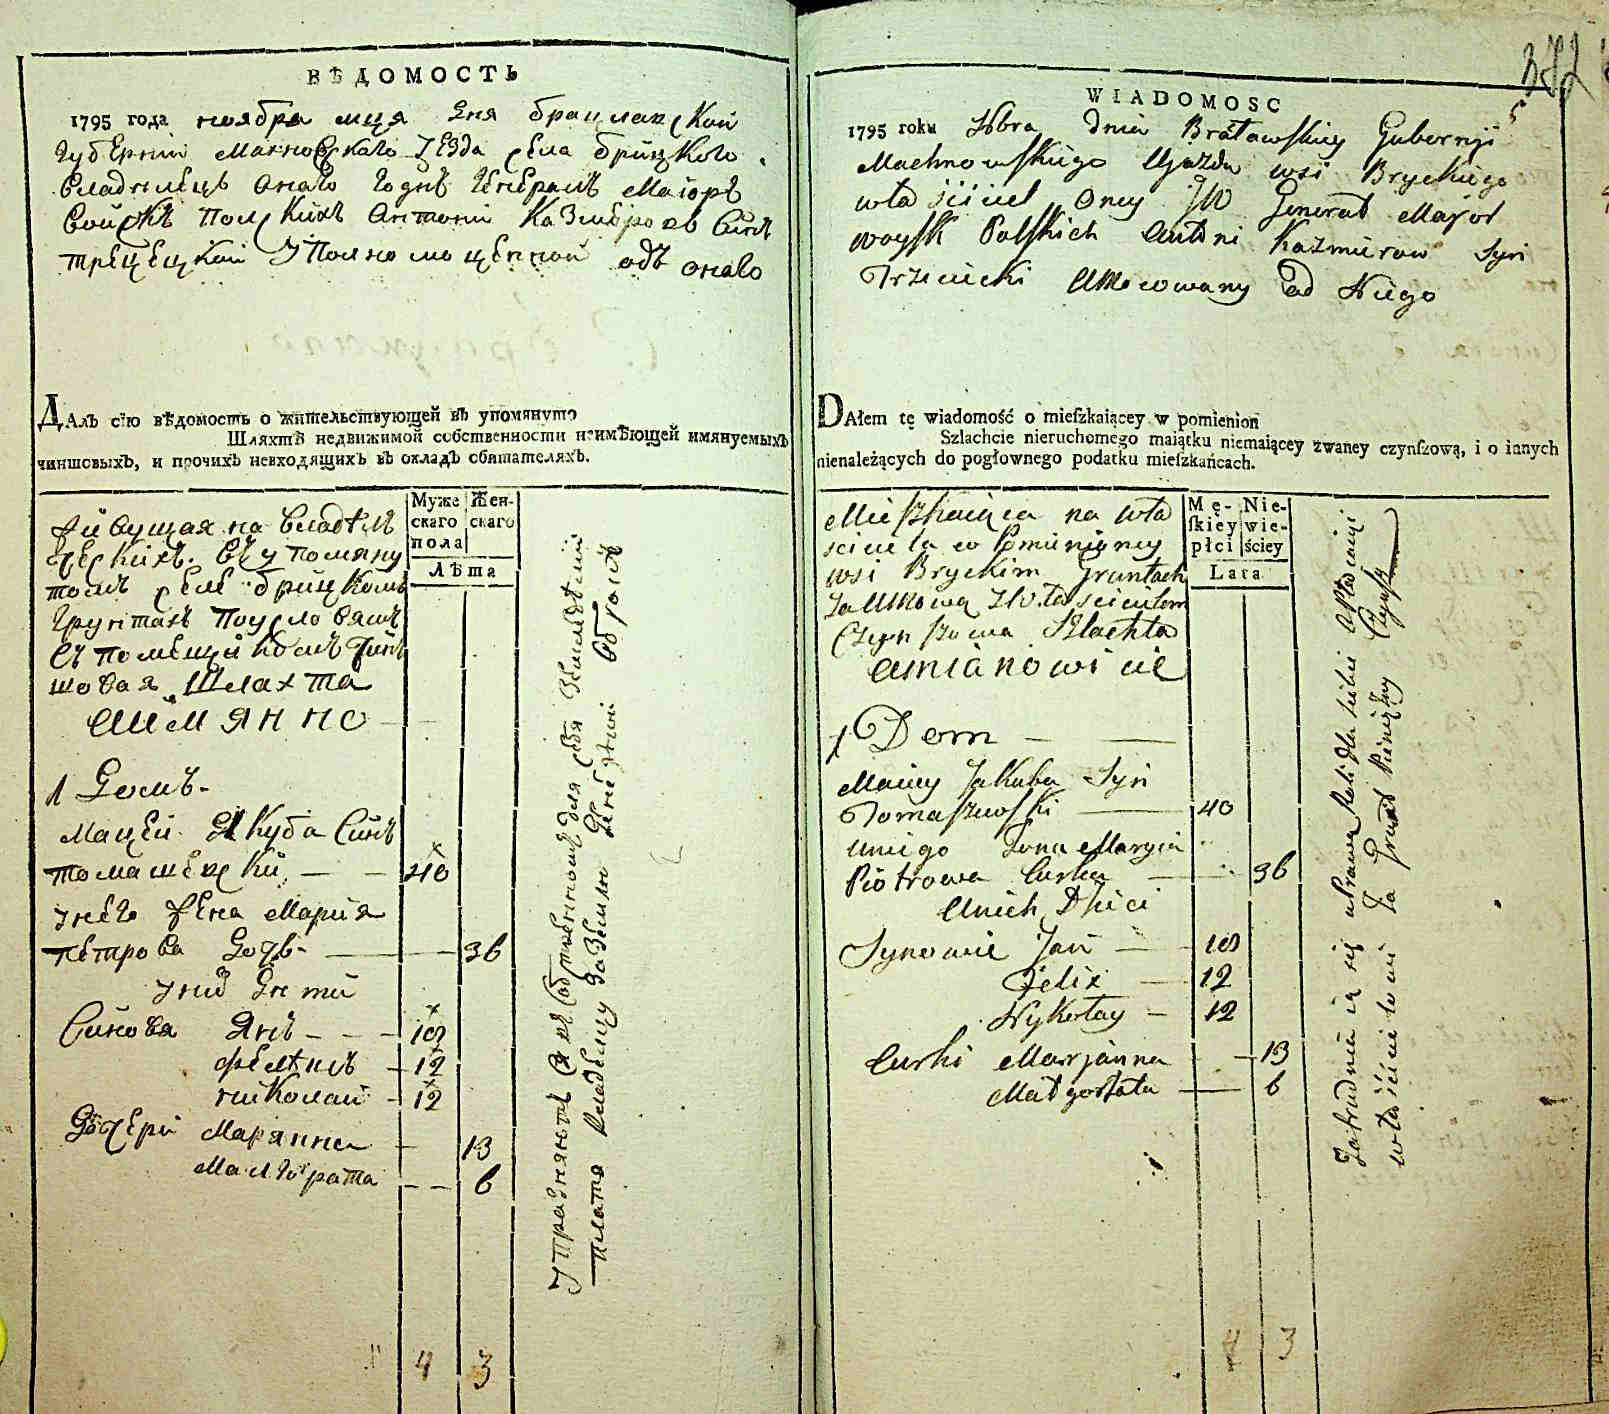 ВѢДОМОСТЬ
1795 года ноября мця дня брацлавской
Губерніи Махновскаго Уезда села брицкого
владелецъ онаго Генералъ Маіоръ
войскъ полскихъ Антоній Казмеровъ синъ
трецецкій Уполномоценной одъ онаго
ДАлъ сію вѣдомость о жительствующей въ упомянуто
Шляхтѣ недвижимой собственности неимѣющей имянуемыхъ
чиншовыхъ, и прочихъ невходящихъ въ окладъ обитателяхъ.
Муже скаго пола
Жен- скаго
Лѣта
живущая на владел
ческихъ въ упомяну
томъ селе брицкомъ
грунтахъ по условямъ
съ помещикомъ чин
шовая шляхта
Аимянно
1 Домъ
Мацей Якуба синъ
томашевски 40
У него жена Мария
петрова дочъ 36
У нихъ дети
Синовя Янъ 18
феликсъ 12
николай 12
Дочери Марянна 13
Малгората 6
Упразняютъ для себя
платя владелцу за землю
4 3
372
5
WIADOMOSC
1795 roku Nbra dnia Bracławskiey Gubernji
Machnowskiego Ujazdu wsi Bryckiego
właściciel oney JW Generał Major
woysk Polskich Antoni Kazmierow Syn
Trzeciecki Umocowany od Niego
DAłem tę wiadomość o mieſzkaiącey w pomienion
Szlachcie nieruchomego maiątku niemaiącey zwaney czynſzową, i o innych
nienależących do pogłownego podatku mieſzkańcach.
Mę- ſkiey płci
Nie- wie- ściey
Lata
Mieszkaiąca na wła
sciciela w Pomienioney
wsi Bryckim Gruntach
za Umową z właścicielem
Czynszowa Szlachta
Amianowicie
1 Dom
Maciey Jakuba Syn
Tomaszewski 40
Uniego Żona Maryia
Piotrowa Curka 36
Unich Dzieci
Synowie Jan 18
Felix 12
Nykołay 12
Curki Marjanna 13
Małgorzata 6
Zatrudniaią się uPrawą Roli dla siebie oPłacaiąc
właścicielowi za Grunt Pieniężny Czynsz
4 3